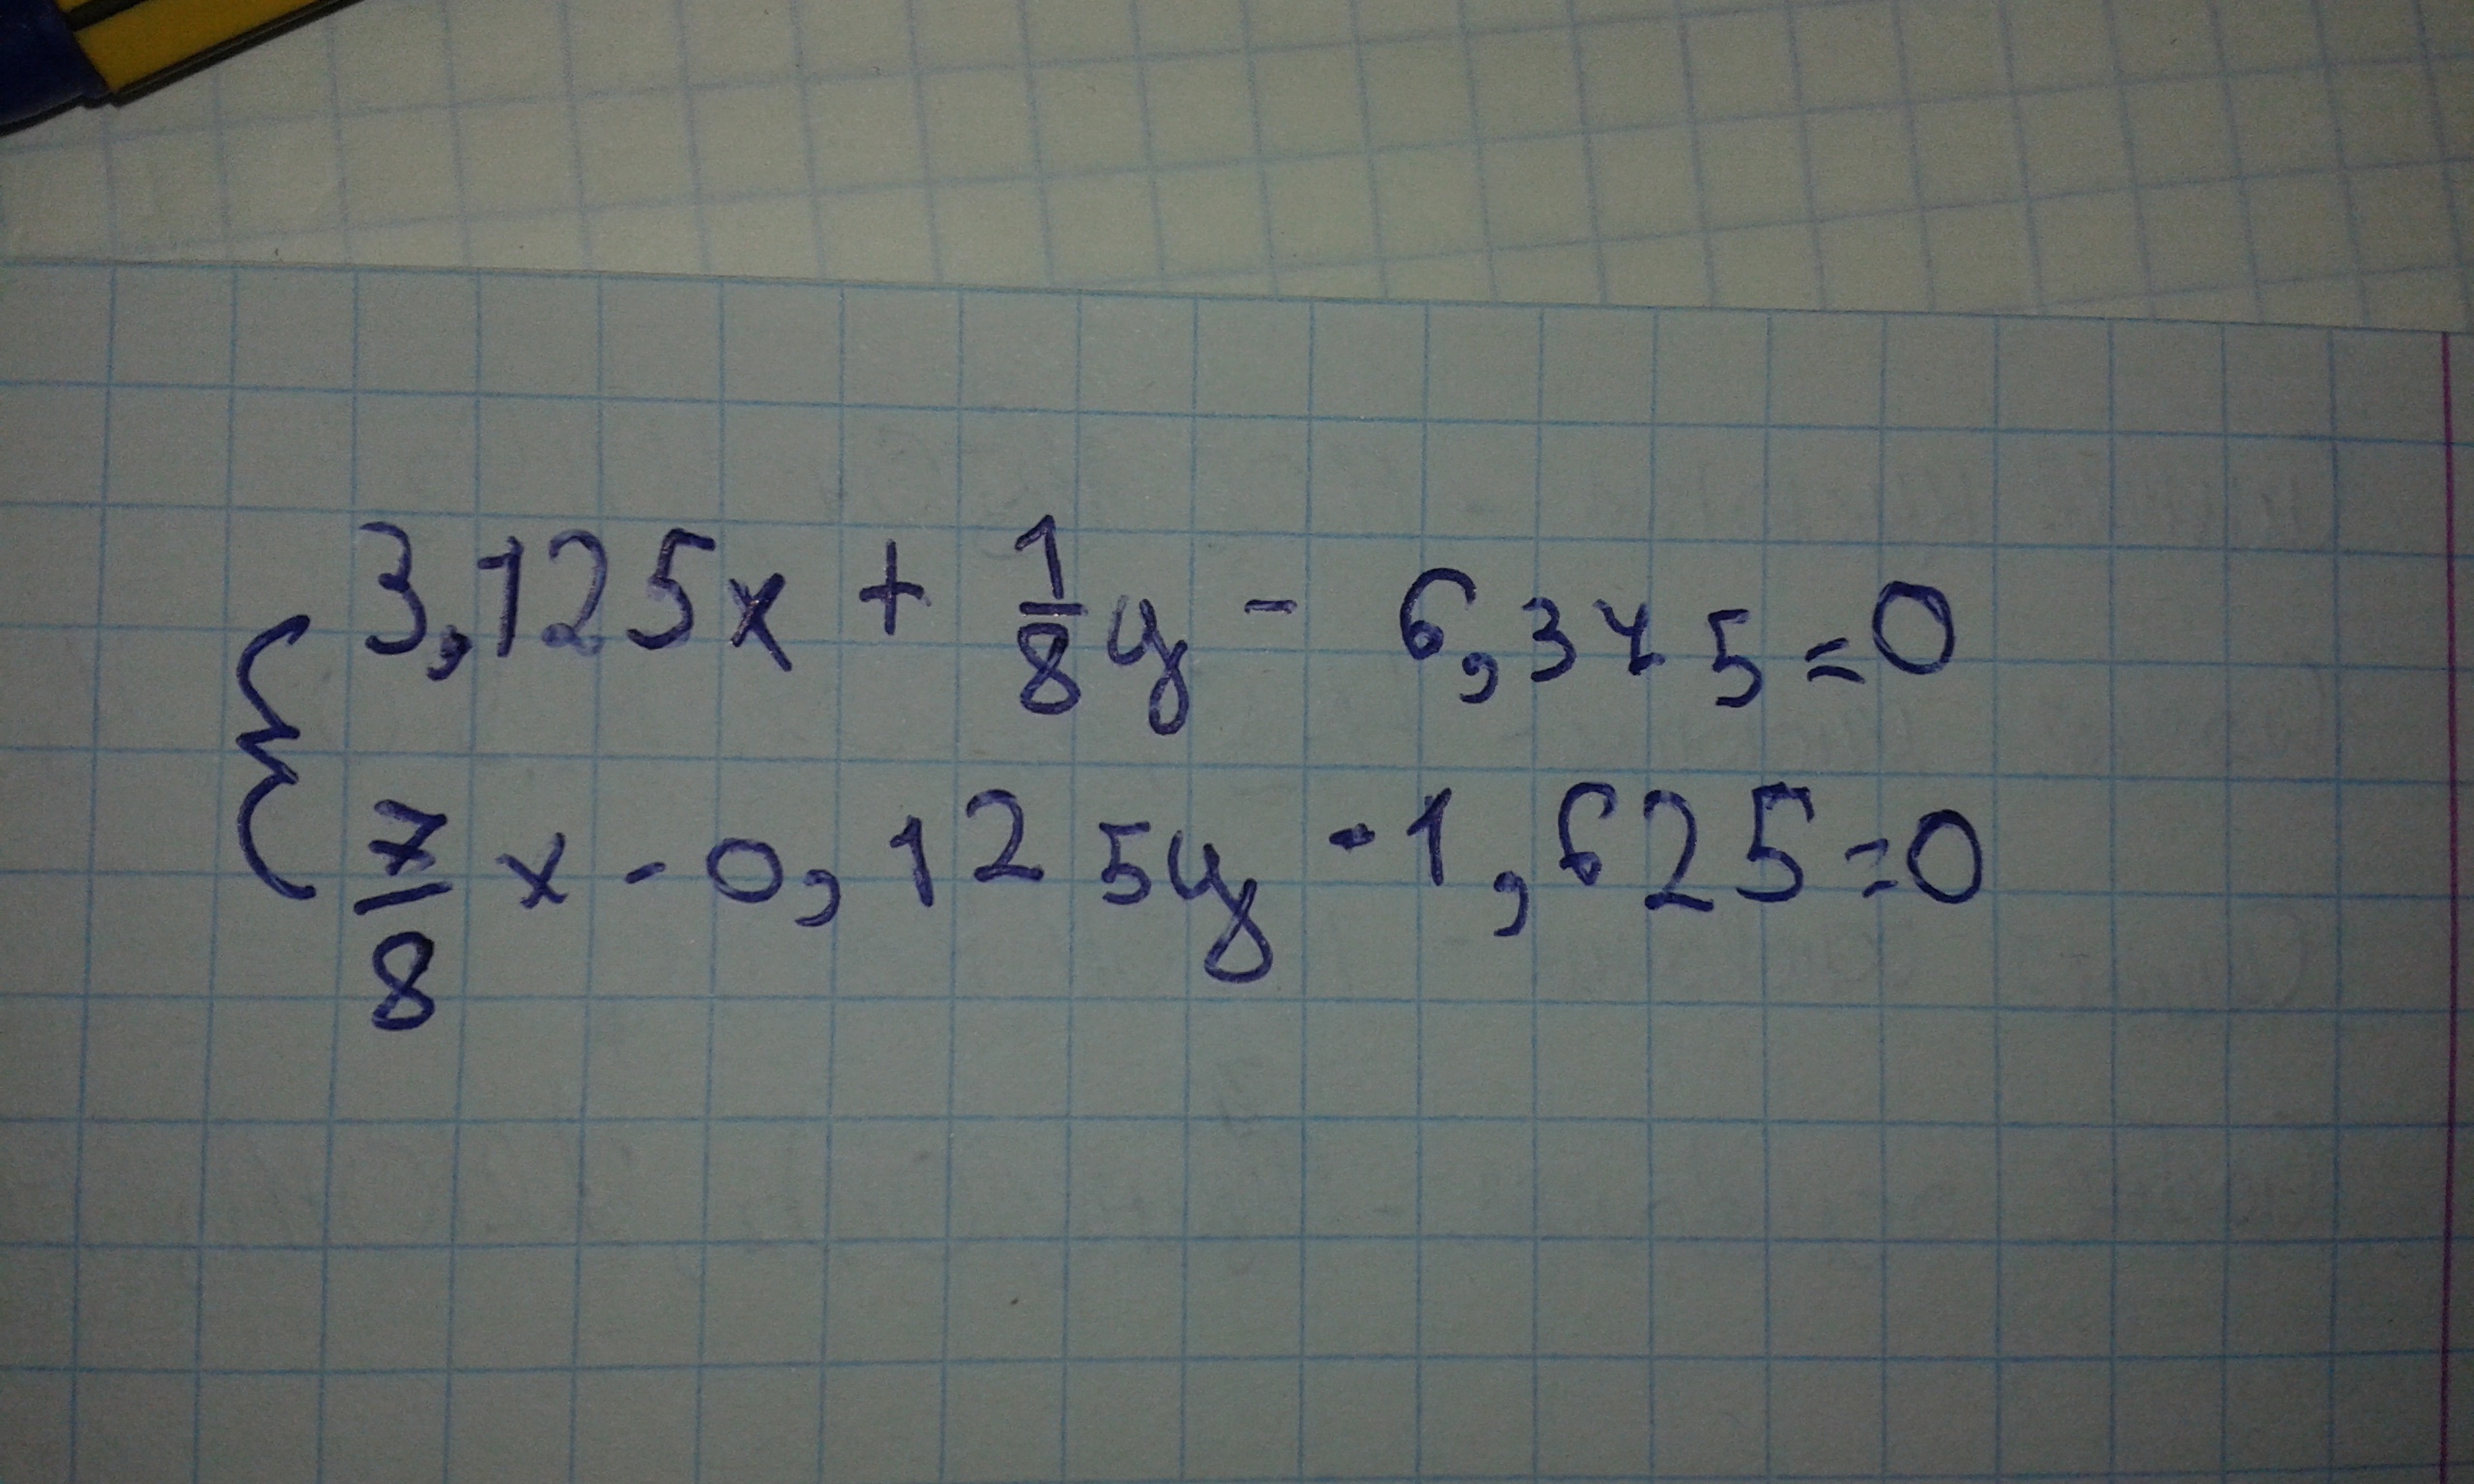 3,125x + 1/8 y - 6,375=0
7/8 x - 0,125y - 1,625=0